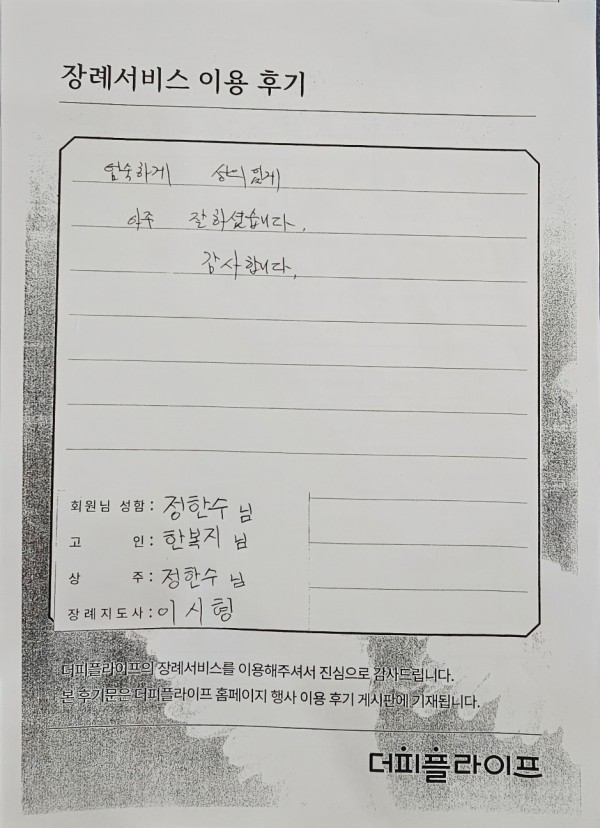 장례서비스 이용 후기
엄숙하게 성의 있게
아주 잘하셨습니다.
감사합니다.
회원님 성함 : 정한수 님
고 인 : 한복지 님
상 주 : 정한수 님
장례지도사 : 이시형
더피플라이프의 장례서비스를 이용해주셔서 진심으로 감사드립니다.
본 후기문은 더피플라이프 홈페이지 행사 이용 후기 게시판에 기재됩니다.
더피플라이프